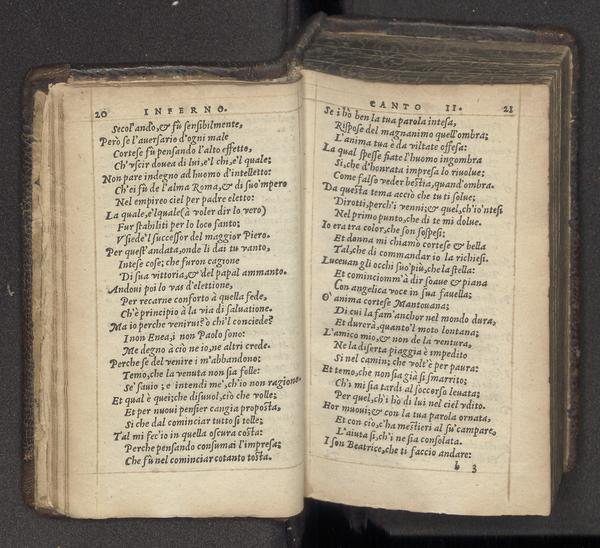 20 INFERNO.
Secol'andò, & fù sensibilmente,
Però se l'auersario d'ogni male
Cortese fù pensando l'alto effetto,
Ch'vscir douea di lui, e'l chi, e'l quale;
Non pare indegno ad huomo d'intelletto:
Ch'ei fù de l'alma Roma, & di suo'mpero
Nel empireo ciel per padre eletto:
La quale, e'lquale (à voler dir lo vero)
Fur stabiliti per lo loco santo;
V siede'l successor del maggior Piero.
Per quest'andata, onde li dai tu vanto,
Intese cose; che furon cagione
Di sua vittoria, & del papal ammanto.
Andoui poi lo vas d'elettione,
Per recarne conforto à quella fede,
Ch'è principio à la via di saluatione.
Ma io perche venirui? ò chi'l conciede?
I non Enea, i non Paolo sono:
Me degno à ciò ne io, ne altri crede.
Perche se del venire i m'abbandono;
Temo, che la venuta non sia folle:
Se' sauio; e intendi me', ch'io non ragiono.
Et qual è quei; che disuol, ciò che volle;
Et per nuoui pensier cangia proposta,
Si che dal cominciar tutto si tolle;
Tal mi fec'io in quella oscura costa:
Perche pensando consumai l'impresa;
Che fù nel cominciar cotanto tosta.
CANTO II. 21
Se i hò ben la tua parola intesa,
Rispose del magnanimo quell'ombra;
L'anima tua è da viltate offesa:
La qual spesse fiate l'huomo ingombra
Sì, che d'honrata impresa lo riuolue;
Come falso veder bestia, quand'ombra.
Da questa tema acciò che tu ti solue;
Dirotti, perch'i venni; & quel, ch'io'ntesi
Nel primo punto, che di te mi dolue.
Io era tra color, che son sospesi;
Et donna mi chiamò cortese & bella
Tal, che di commandar io la richiesi.
Luceuan gli occhi suo'più, che la stella:
Et cominciomm'à dir soaue & piana
Con angelica voce in sua fauella;
O' anima cortese Mantouana;
Di cui la fam'anchor nel mondo dura,
Et durerà, quanto'l moto lontana;
L'amico mio, & non de la ventura,
Ne la diserta piaggia è impedito
Si nel camin; che volt'è per paura:
Et temo, che non sia già si smarrito;
Ch'i mi sia tardi al soccorso leuata;
Per quel, ch'i hò di lui nel ciel vdito.
Hor muoui; & con la tua parola ornata,
Et con ciò, c'ha mestieri al su'campare,
L'aiuta si, ch'i ne sia consolata.
I son Beatrice, che ti faccio andare:
b 3